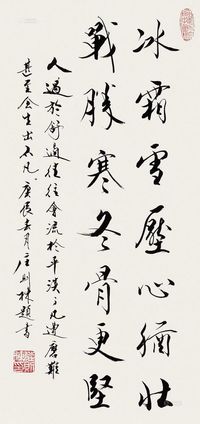 冰霜雪壓心猶壯
戰勝寒冬骨更堅
人過於舒適往往會流於平淡之凡遭磨難
甚至會生出不凡庚辰春月庄則棟題書